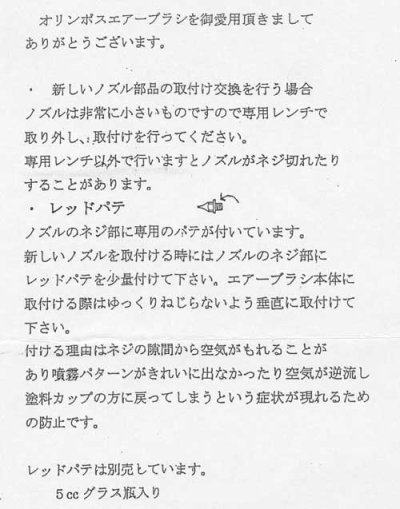 オリンポスエアーブラシを御愛用頂きまして
ありがとうございます。
・ 新しいノズル部品の取付け交換を行う場合
ノズルは非常に小さいものですので専用レンチで
取り外し、取付けを行ってください。
専用レンチ以外で行いますとノズルがネジ切れたり
することがあります。
・ レッドパテ
ノズルのネジ部に専用のパテが付いています。
新しいノズルを取付ける時にはノズルのネジ部に
レッドパテを少量付けて下さい。エアーブラシ本体に
取付ける際はゆっくりねじらないよう垂直に取付けて
下さい。
付ける理由はネジの隙間から空気がもれることが
あり噴霧パターンがきれいに出なかったり空気が逆流し
塗料カップの方に戻ってしまうという症状が現れるため
の防止です。
レッドパテは別売しています。
5ccグラス瓶入り